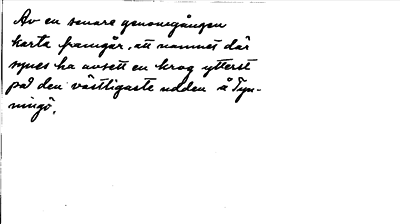 Av en senare genomgången
karta framgår, att namnet där
synes ha avsett en krog ytterst
på den västligaste udden å Tyn-
ningö.